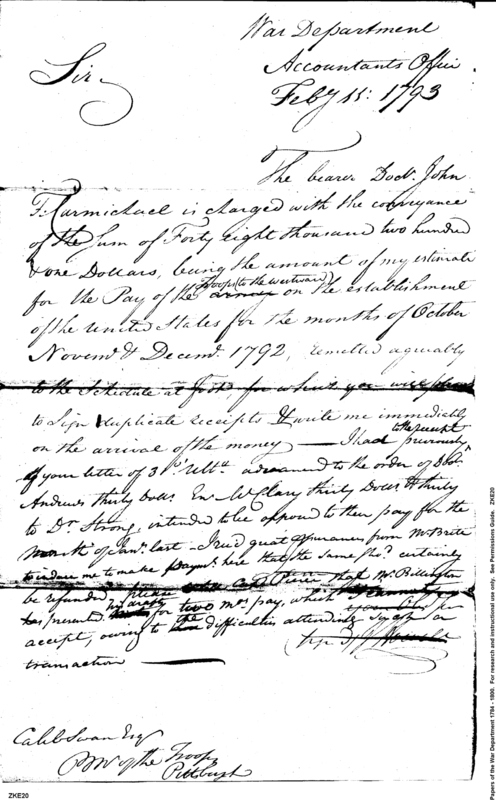 War Department
Accountants Office
Feby 11: 1793
Sir
The bearer Doctr. John
F. Carmichael is charged with the conveyance
of the Sum of Forty eight thousand two hundred
& one Dollars, being the amount of my estimate
for the Pay of the Troops (to the westward) on the establishment
of the United States for the months of October
Novemr. & Decemr. 1792, remitted agreeably
to the Schedule at foot, for which you will please
to Sign duplicate receipts & write me immediately
on the arrival of the money — I had previously
to the receipt
of your letter of 3d. Ulto. advanced to the order of Doctr.
Andrews thirty Dolls. En McClary thirty Dolls & thirty
to Dr Strong, intended to be opposed to their pay for the
Month of Jany. last - I recd great assurances from Mr Brite
to induce me to make payment here that the same should certainly
be refunded, please Mr. Billington
has presented for two Mos. pay, which
accept, owing to the difficulties attending such a
transaction
Caleb Swan Esqr
P Mr of the Troops
Pittsburgh
ZKE20
Papers of the War Department 1784 - 1800. For research and instructional use only. See Permissions Guide. ZKE20